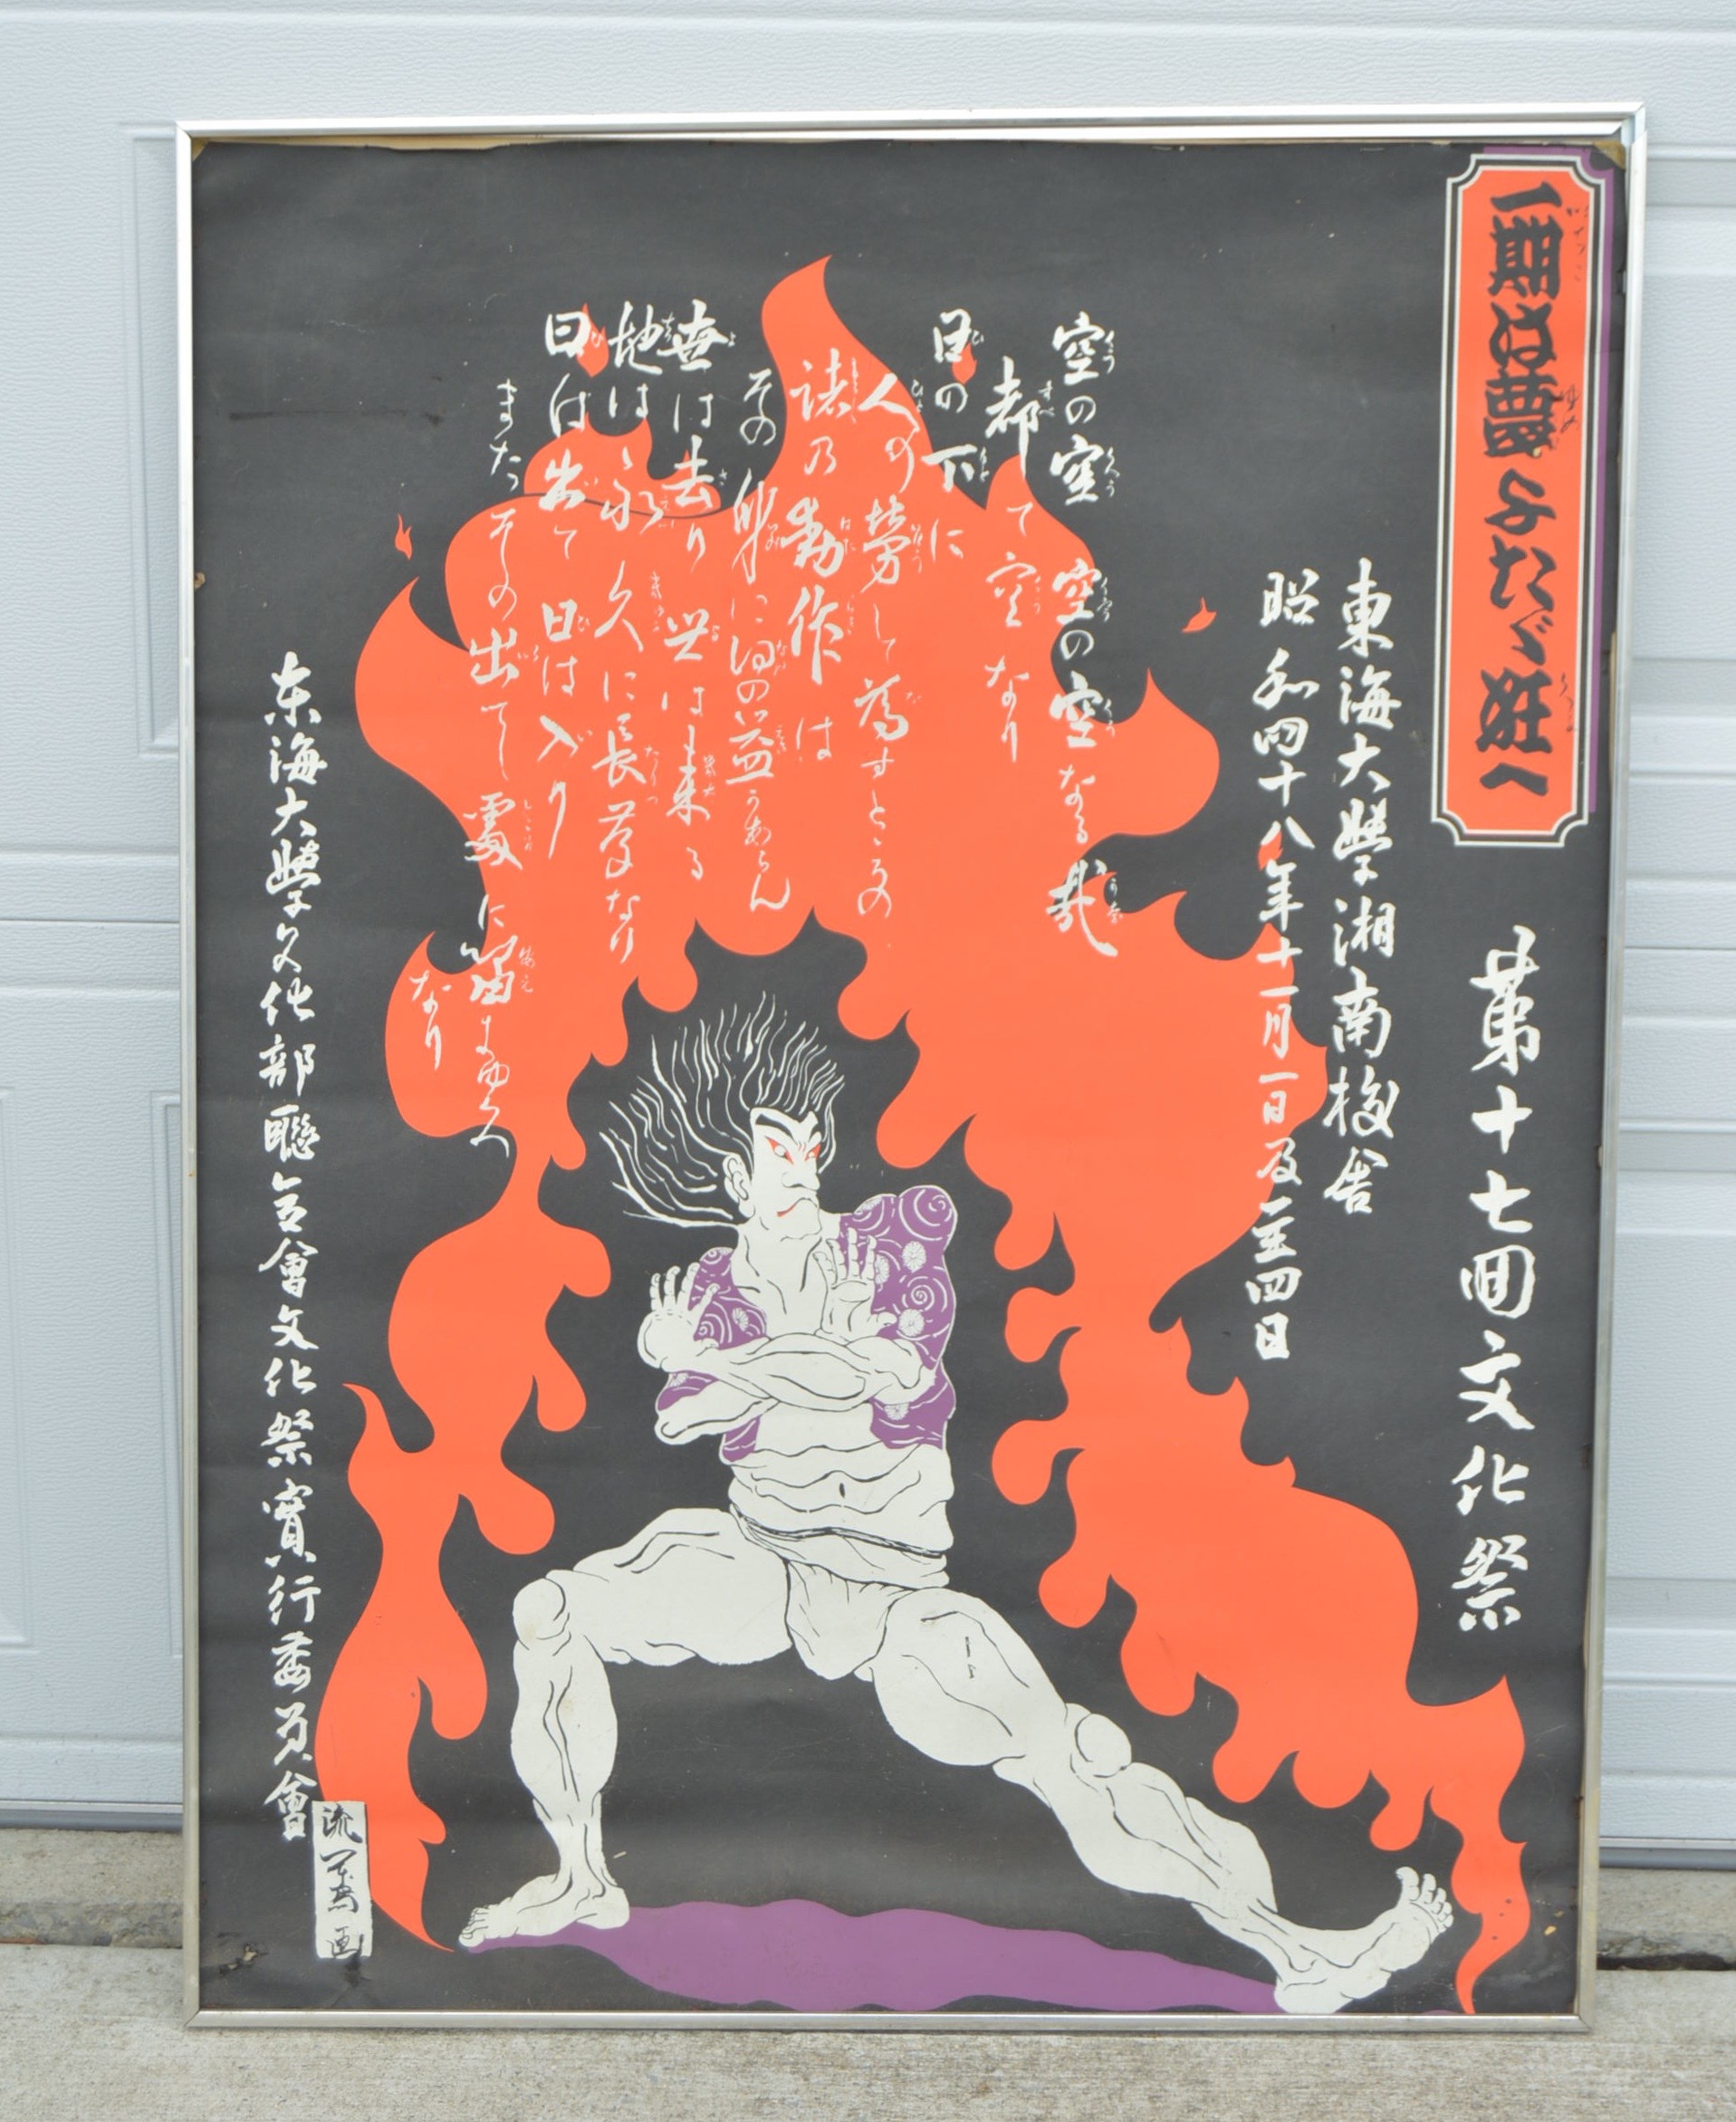 一期は夢よたゞ狂へ
第十七回文化祭
東海大學湘南校舎
昭和四十八年十一月一日及至四日
空の空 空の空なる哉
都て空なり
日の下に
人の労して為すところの
諸の動作は
その身に何の益かあらん
世は去り世は来る
地は永久に長存なり
日は出で日は入り
またその出し處に喘ぎゆく
なり
東海大學文化部聯合會文化祭實行委員會
流 萬 画